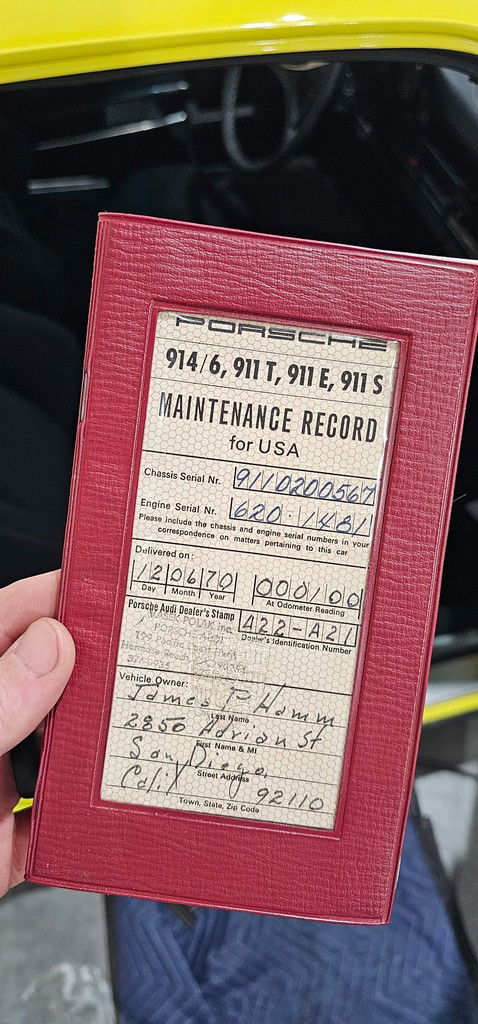 PORSCHE
914/6, 911 T, 911 E, 911 S
MAINTENANCE RECORD
for USA
Chassis Serial Nr. 9110200567
Engine Serial Nr. 620·1481
Please include the chassis and engine serial numbers in your
correspondence on matters pertaining to this car
Delivered on:
12 06 70 000100
Day Month Year At Odometer Reading
Porsche Audi Dealer's Stamp 422-A21
Dealer's Identification Number
Vehicle Owner:
James P Hamm
Last Name
2850 Adrian St
First Name & MI
San Diego,
Street Address
Calif 92110
Town, State, Zip Code